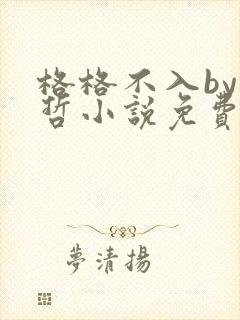 格格不入by
哲小説免費
夢清揚